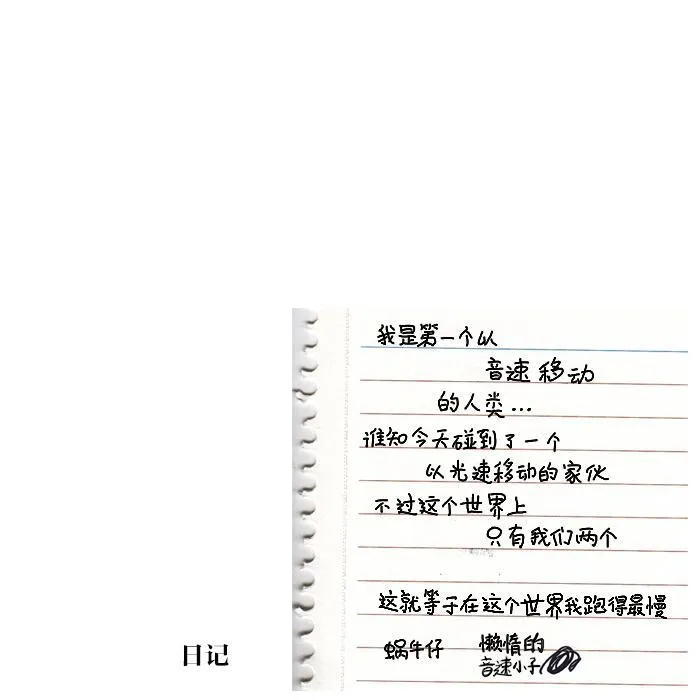 我是第一个以
音速移动
的人类...
谁知今天碰到了一个
以光速移动的家伙
不过这个世界上
只有我们两个
这就等于在这个世界我跑得最慢
蜗牛仔 懒惰的
音速小子
日记